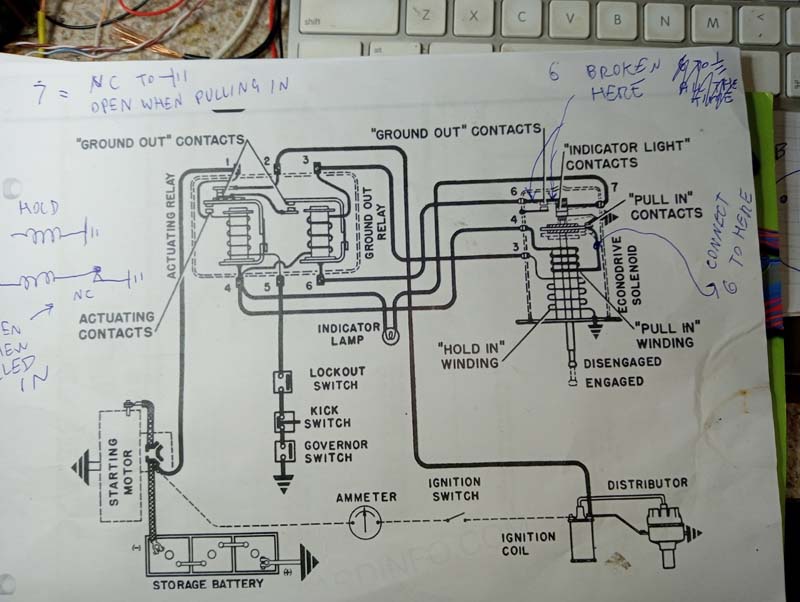 shift
Z
X
C
V
B
N
M
<
,
7 = NC TO
OPEN WHEN PULLING IN
6 BROKEN
HERE
"GROUND OUT" CONTACTS
"GROUND OUT" CONTACTS
"INDICATOR LIGHT"
CONTACTS
1
2
3
6
7
"PULL IN"
CONTACTS
ACTUATING RELAY
GROUND OUT
RELAY
4
3
ECONODRIVE
SOLENOID
CONNECT
6 TO HERE
HOLD
NC
4
5
6
ACTUATING
CONTACTS
INDICATOR
LAMP
"HOLD IN"
WINDING
"PULL IN"
WINDING
IN
DISENGAGED
ENGAGED
LOCKOUT
SWITCH
KICK
SWITCH
GOVERNOR
SWITCH
STARTING
MOTOR
AMMETER
IGNITION
SWITCH
DISTRIBUTOR
IGNITION
COIL
(-)
(+)
STORAGE BATTERY